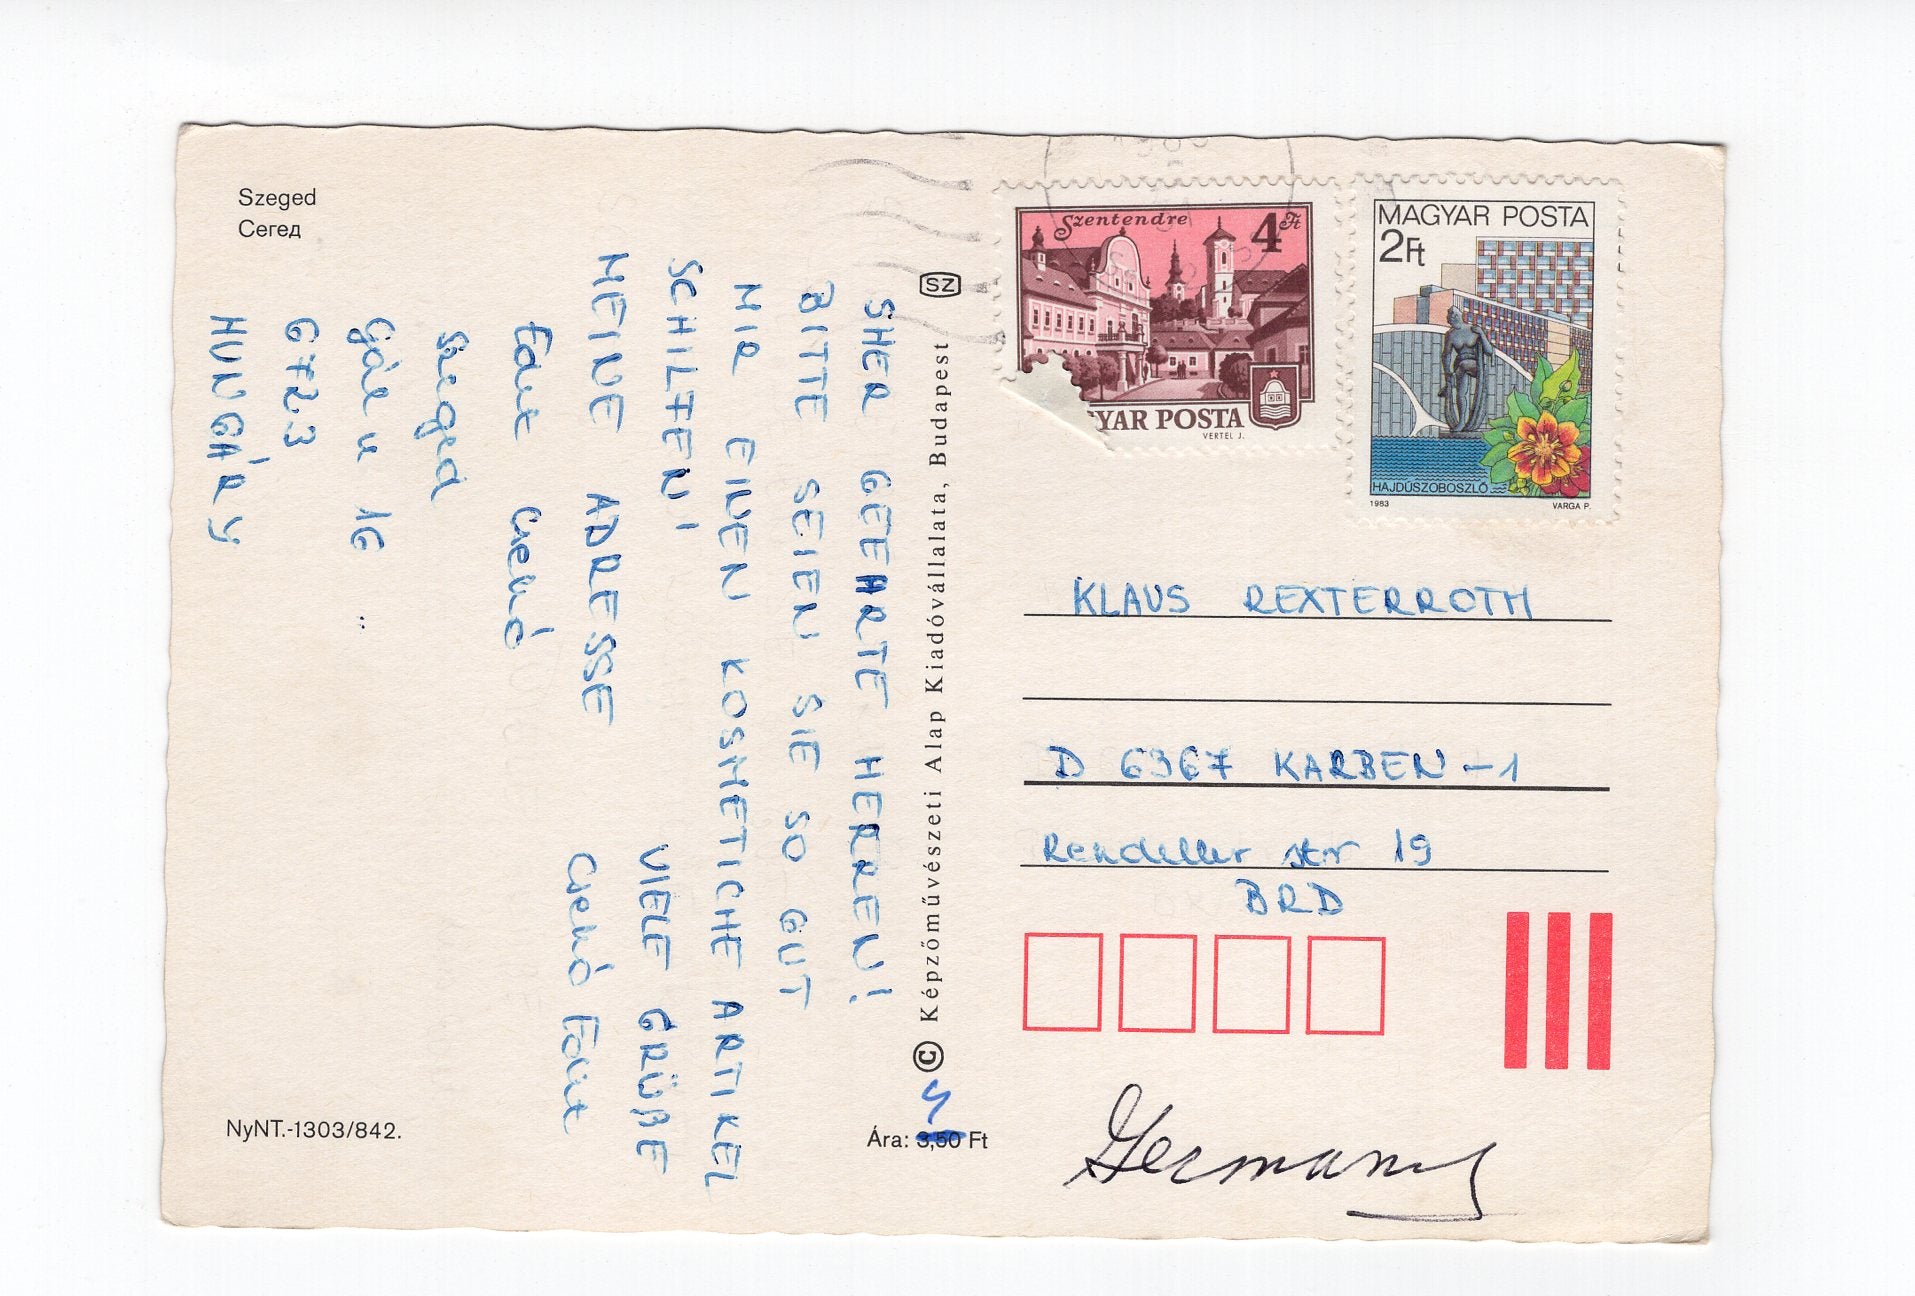 Szeged
Сегед
SHER GEEHRTE HERREN!
BITTE SEIEN SIE SO GUT
MIR EINEN KOSMETICHE ARTIKEL
SCHILFEN!
VIELE GRÜßE
MEINE ADRESSE
Csekó Edit
Edit Csekó
Szeged
Gál u 16
6723
HUNGÁRY
NyNT.-1303/842.
SZ
© Képzőművészeti Alap Kiadóvállalata, Budapest
4
Ára: 3,50 Ft
Szentendre 4 Ft
YAR POSTA
VERTEL J.
MAGYAR POSTA
2 Ft
HAJDÚSZOBOSZLÓ
1983 VARGA P.
KLAUS REXTERROTH
D 6367 KARBEN-1
Rendeller str 19
BRD
Germany